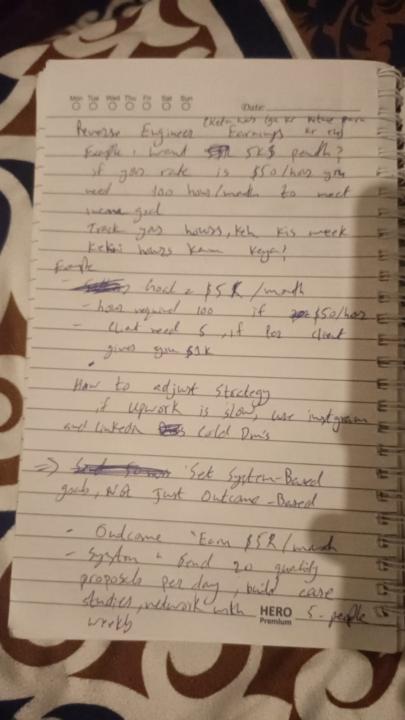 Mon Tue Wed Thu Fri Sat Sun
Date:
Reverse Engineer Earnings
want 5K$
if your rate is $50/hour you
need 100 hours/month to meet
income goal
Track your hours, keh kis week
hours kam
Goal = $5K/month
- hour required 100 if $50/hour
- client need 5, if client
gives you $1K
How to adjust strategy
if upwork is slow, use instgram
and linkedin cold Dm's
=> Set System-Based
goals, Not Just Outcome-Based
- Outcome "Earn $5K/month
- System " Send 20 quality
proposals per day, build case
studies, network with 5-people
HERO
Premium
weekly